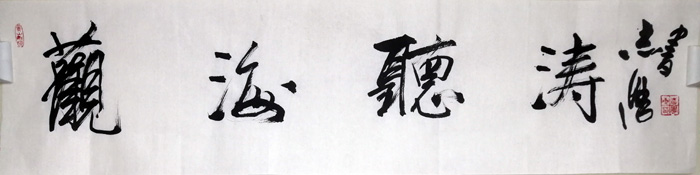 觀海聽涛